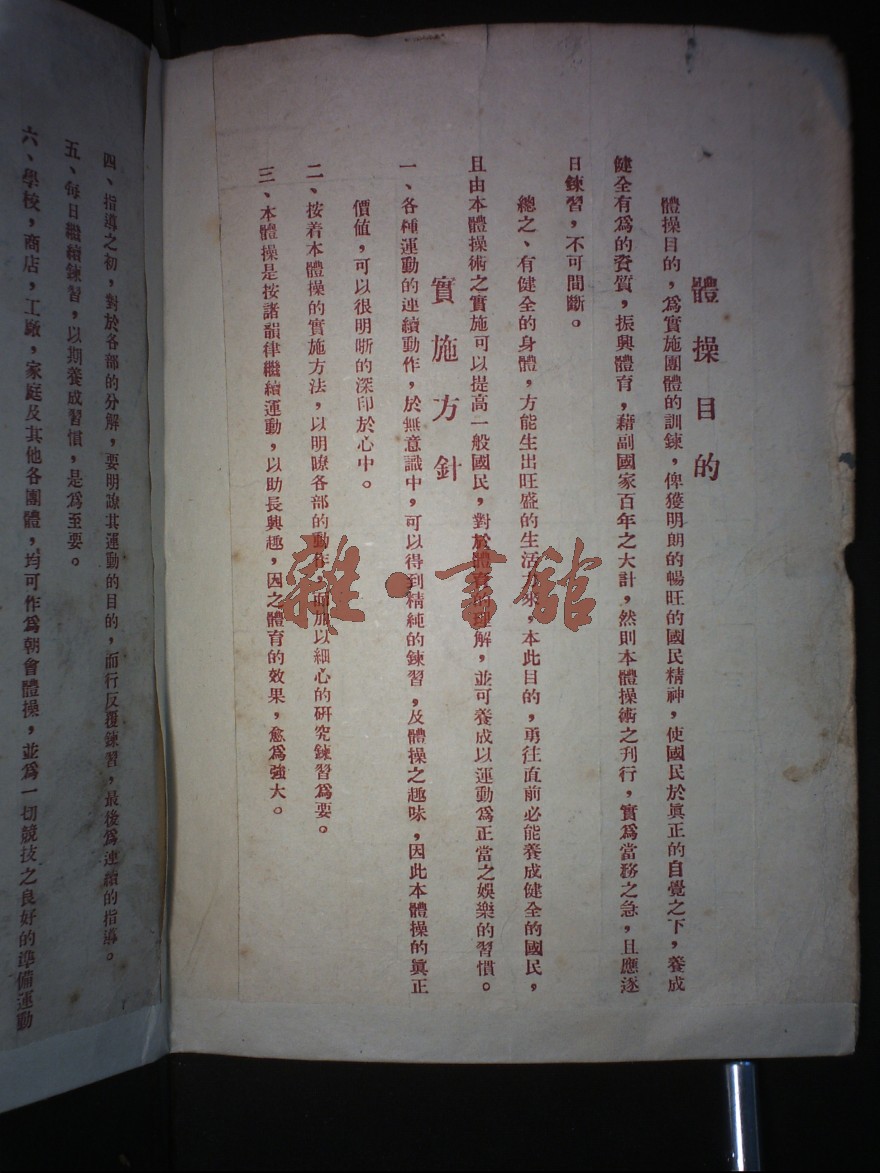 體操目的
體操目的，爲實施團體的訓鍊，俾獲明朗的暢旺的國民精神，使國民於眞正的自覺之下，養成
健全有爲的資質，振興體育，藉副國家百年之大計，然則本體操術之刋行，實爲當務之急，且應逐
日鍊習，不可間斷。
總之、有健全的身體，方能生出旺盛的生活力來，本此目的，勇往直前必能養成健全的國民，
且由本體操術之實施可以提高一般國民，對於體育的理解，並可養成以運動爲正當之娛樂的習慣。
實施方針
一、各種運動的連續動作，於無意識中，可以得到精純的鍊習，及體操之趣味，因此本體操的眞正
價値，可以很明晰的深印於心中。
二、按着本體操的實施方法，以明瞭各部的動作，而加以細心的研究鍊習爲要。
三、本體操是按諸韻律繼續運動，以助長興趣，因之體育的效果，愈爲強大。
四、指導之初，對於各部的分解，要明諒其運動的目的，而行反覆鍊習，最後爲連續的指導。
五、每日繼續鍊習，以期養成習慣，是爲至要。
六、學校，商店，工廠，家庭及其他各團體，均可作爲朝會體操，並爲一切競技之良好的準備運動
雜·書館